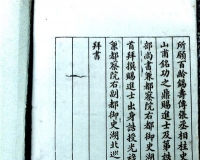 所願百齡錫壽傳張丞相柱史
山甫銘功之鼎賜進士及第誥
部尚書兼都察院右都御史
首拜撰賜進士出身誥授光祿
兼都察院右副都御史湖北巡
拜書